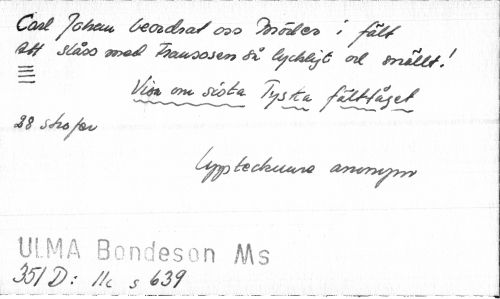 Carl Johan beordrat oss Bröder i fält
att slåss med Fransosen så lyckligt och snällt!
Visa om sista Tyska fälttåget
28 strofer
Upptecknare anonym
ULMA Bondeson Ms
351 D: 11c s 639